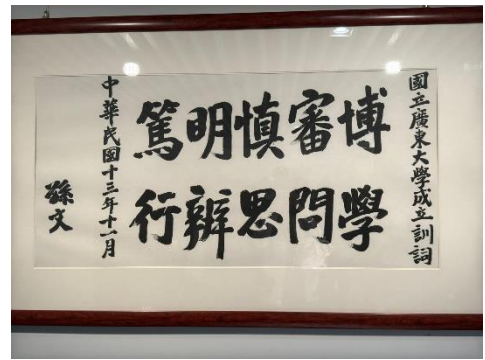 國立廣東大學成立訓詞
博學
審問
慎思
明辨
篤行
中華民國十三年十一月
孫文